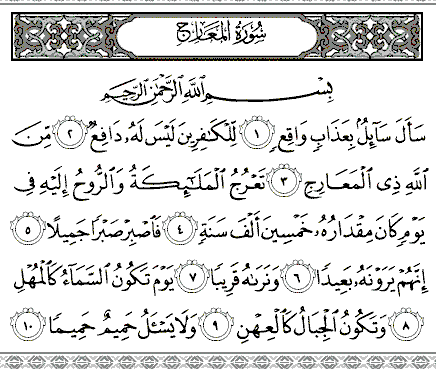 سُورَةُ المَعَارِجِ
بِسْمِ اللَّهِ الرَّحْمَٰنِ الرَّحِيمِ
سَأَلَ سَآئِلٌۢ بِعَذَابٍ وَاقِعٍ ١ لِّلْكَٰفِرِينَ لَيْسَ لَهُۥ دَافِعٌ ٢ مِّنَ
اللَّهِ ذِى الْمَعَارِجِ ٣ تَعْرُجُ الْمَلَٰٓئِكَةُ وَالرُّوحُ إِلَيْهِ فِى
يَوْمٍ كَانَ مِقْدَارُهُۥ خَمْسِينَ أَلْفَ سَنَةٍ ٤ فَاصْبِرْ صَبْرًا جَمِيلًا ٥
إِنَّهُمْ يَرَوْنَهُۥ بَعِيدًا ٦ وَنَرَىٰهُ قَرِيبًا ٧ يَوْمَ تَكُونُ السَّمَآءُ كَالْمُهْلِ
٨ وَتَكُونُ الْجِبَالُ كَالْعِهْنِ ٩ وَلَا يَسْـَٔلُ حَمِيمٌ حَمِيمًا ١٠